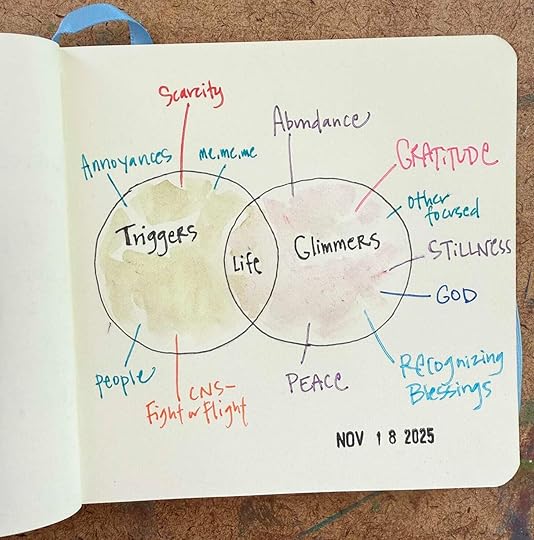 Scarcity
Abundance
Annoyances
me, me, me
GRATITUDE
other
focused
Triggers
Life
Glimmers
STILLNESS
GOD
people
CNS-
Fight or Flight
PEACE
Recognizing
Blessings
NOV 18 2025